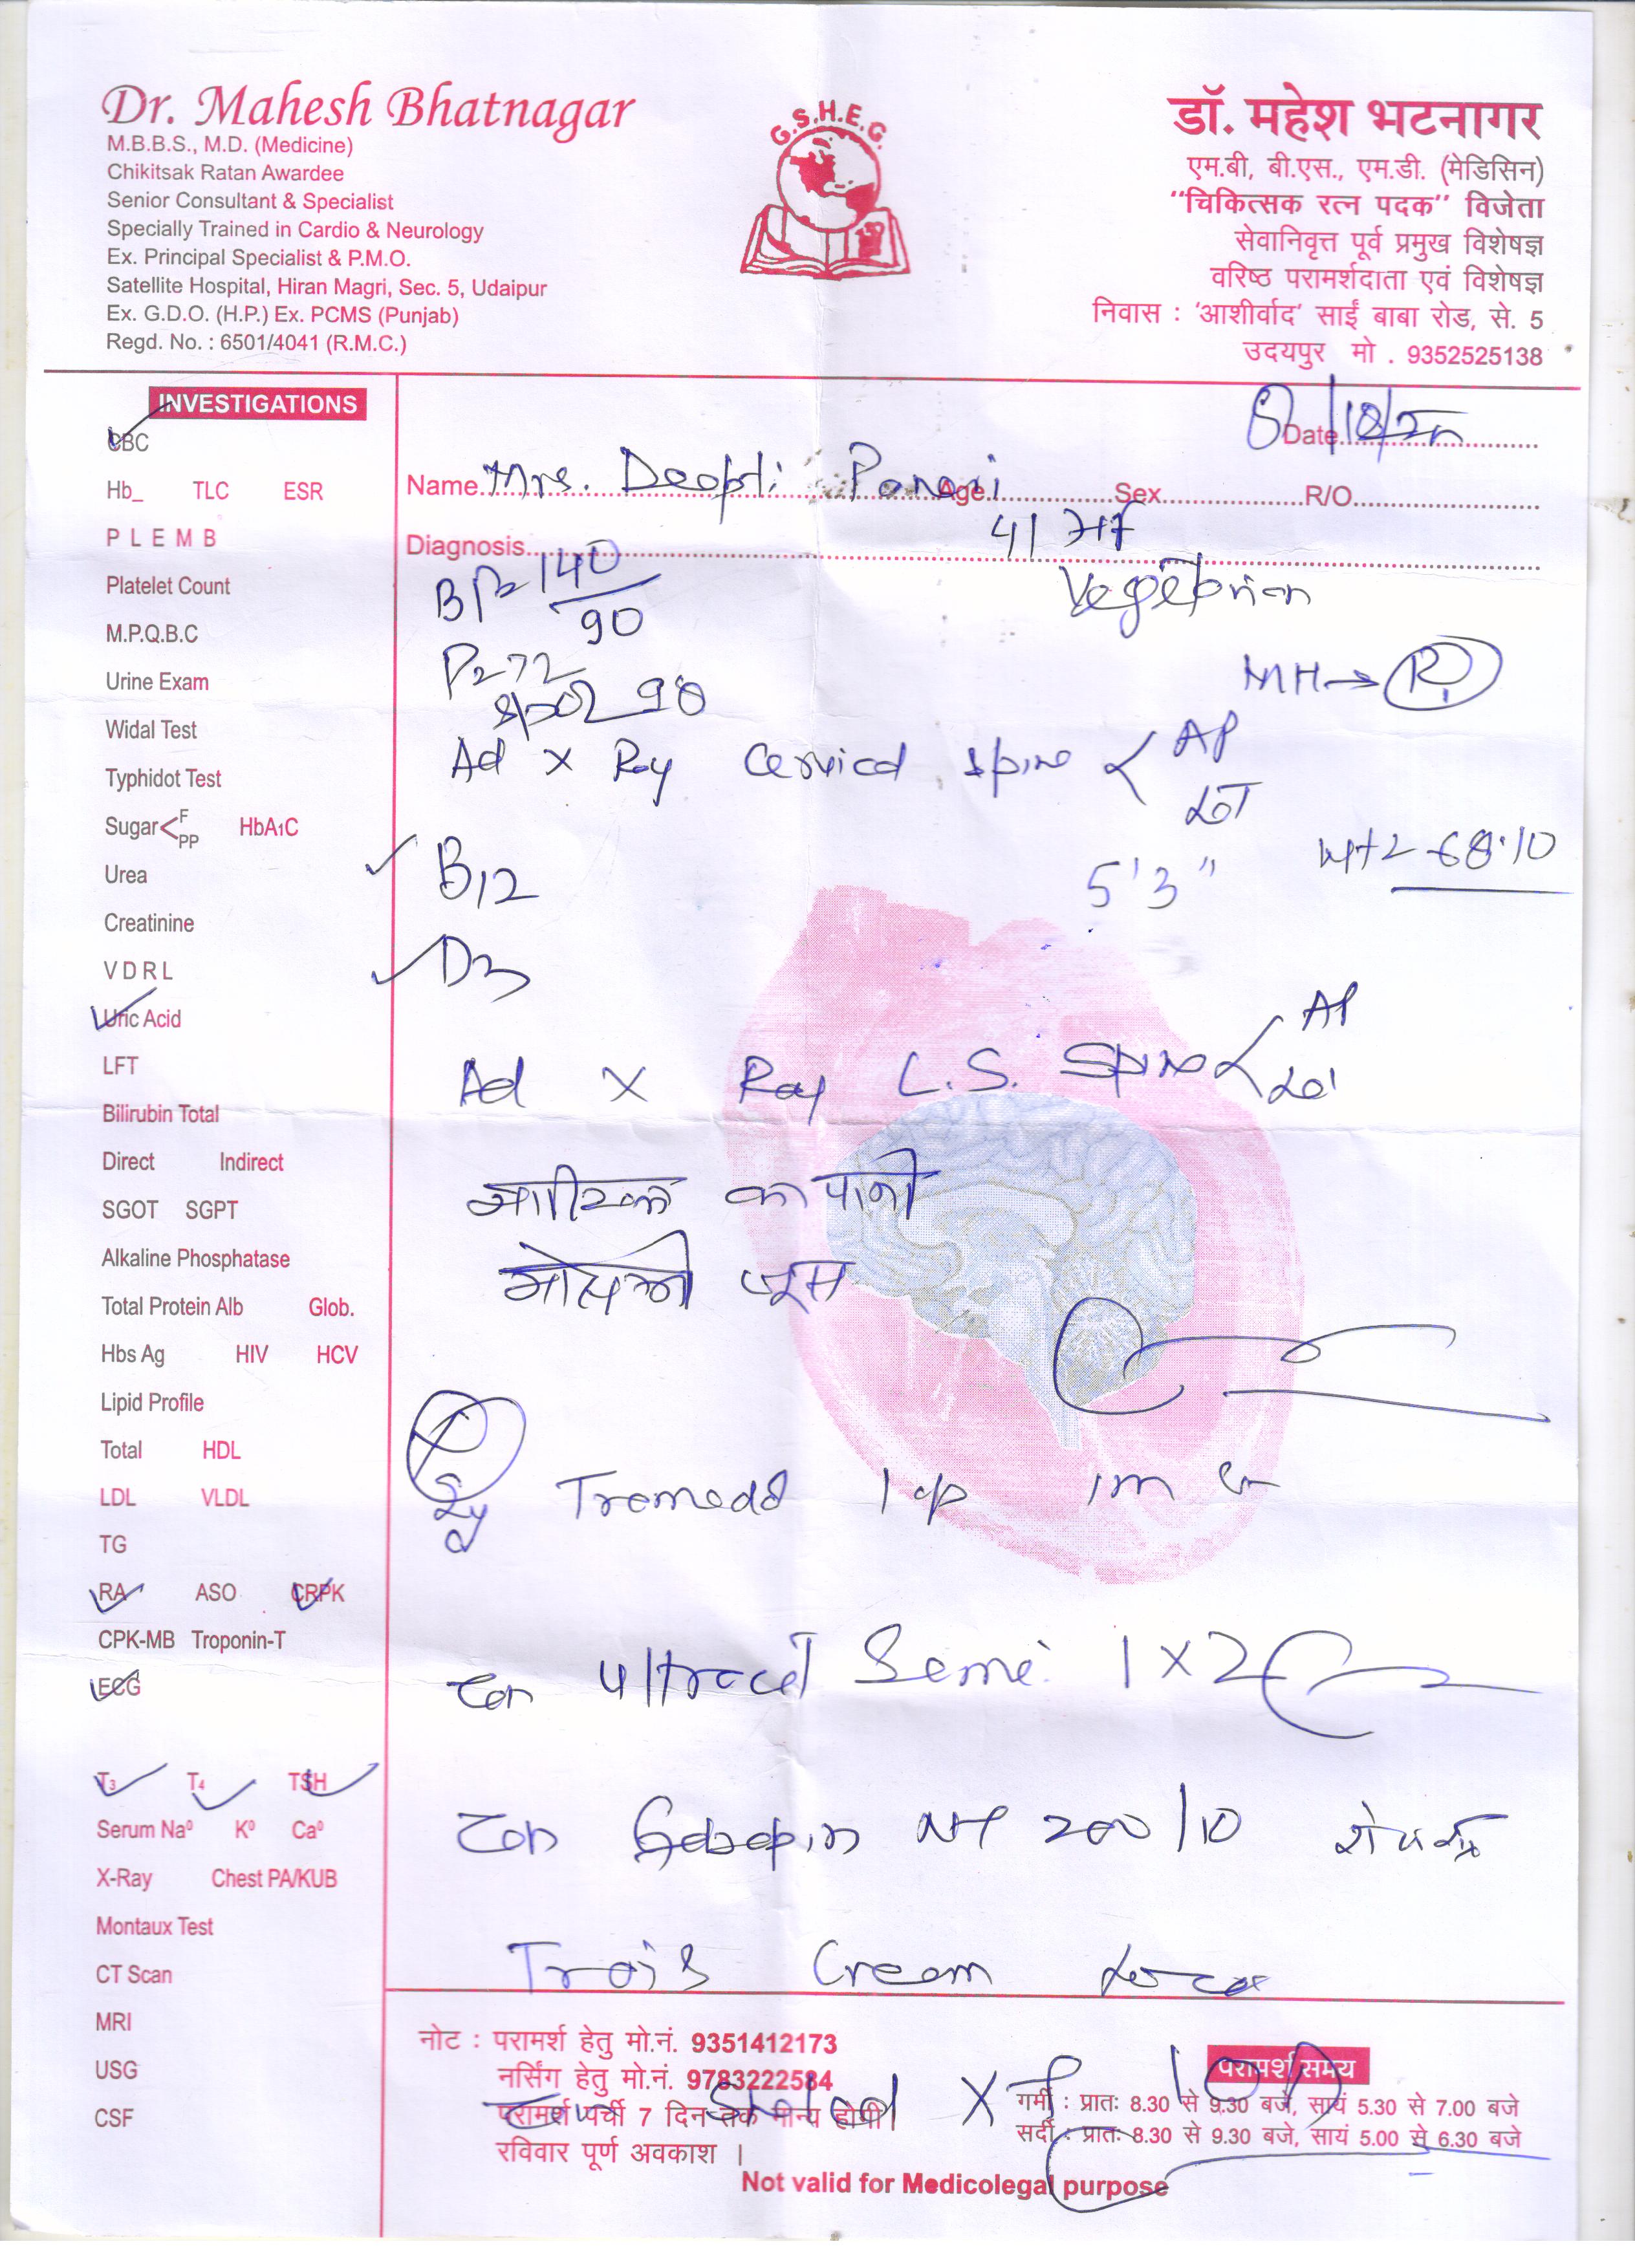 Dr. Mahesh Bhatnagar
M.B.B.S., M.D. (Medicine)
Chikitsak Ratan Awardee
Senior Consultant & Specialist
Specially Trained in Cardio & Neurology
Ex. Principal Specialist & P.M.O.
Satellite Hospital, Hiran Magri, Sec. 5, Udaipur
Ex. G.D.O. (H.P.) Ex. PCMS (Punjab)
Regd. No. : 6501/4041 (R.M.C.)
G.S.H.E.G.
डॉ. महेश भटनागर
एम.बी, बी.एस., एम.डी. (मेडिसिन)
"चिकित्सक रत्न पदक" विजेता
सेवानिवृत्त पूर्व प्रमुख विशेषज्ञ
वरिष्ठ परामर्शदाता एवं विशेषज्ञ
निवास : 'आशीर्वाद' साईं बाबा रोड, से. 5
उदयपुर मो . 9352525138
INVESTIGATIONS
CBC
Hb_ TLC ESR
P L E M B
Platelet Count
M.P.Q.B.C
Urine Exam
Widal Test
Typhidot Test
Sugar< F PP HbA1C
Urea
Creatinine
V D R L
Uric Acid
LFT
Bilirubin Total
Direct Indirect
SGOT SGPT
Alkaline Phosphatase
Total Protein Alb Glob.
Hbs Ag HIV HCV
Lipid Profile
Total HDL
LDL VLDL
TG
RA ASO CRPK
CPK-MB Troponin-T
ECG
T3 T4 TSH
Serum Na⁰ K⁰ Ca⁰
X-Ray Chest PA/KUB
Montaux Test
CT Scan
MRI
USG
CSF
Date
Name Mrs. Age Sex R/O
41
Diagnosis
BP 140/90
Vegetarian
P 72
SpO2 98
MH→
Ad X Ray Cervical Spine < AP
Lat
5'3" Wt 68.10
B12
D3
Ad X Ray L.S. Spine < AP
Lat
का पानी
मोसमी जूस
1 cap
Tab Ultracet Semi 1 X 2
Tab Gabapin NT 200/10
Cream
नोट : परामर्श हेतु मो.नं. 9351412173
नर्सिंग हेतु मो.नं. 9783222584
परामर्श पर्ची 7 दिन तक मान्य होगी।
रविवार पूर्ण अवकाश ।
परामर्श समय
गर्मी : प्रातः 8.30 से 9.30 बजे, सायं 5.30 से 7.00 बजे
सर्दी : प्रातः 8.30 से 9.30 बजे, सायं 5.00 से 6.30 बजे
Not valid for Medicolegal purpose